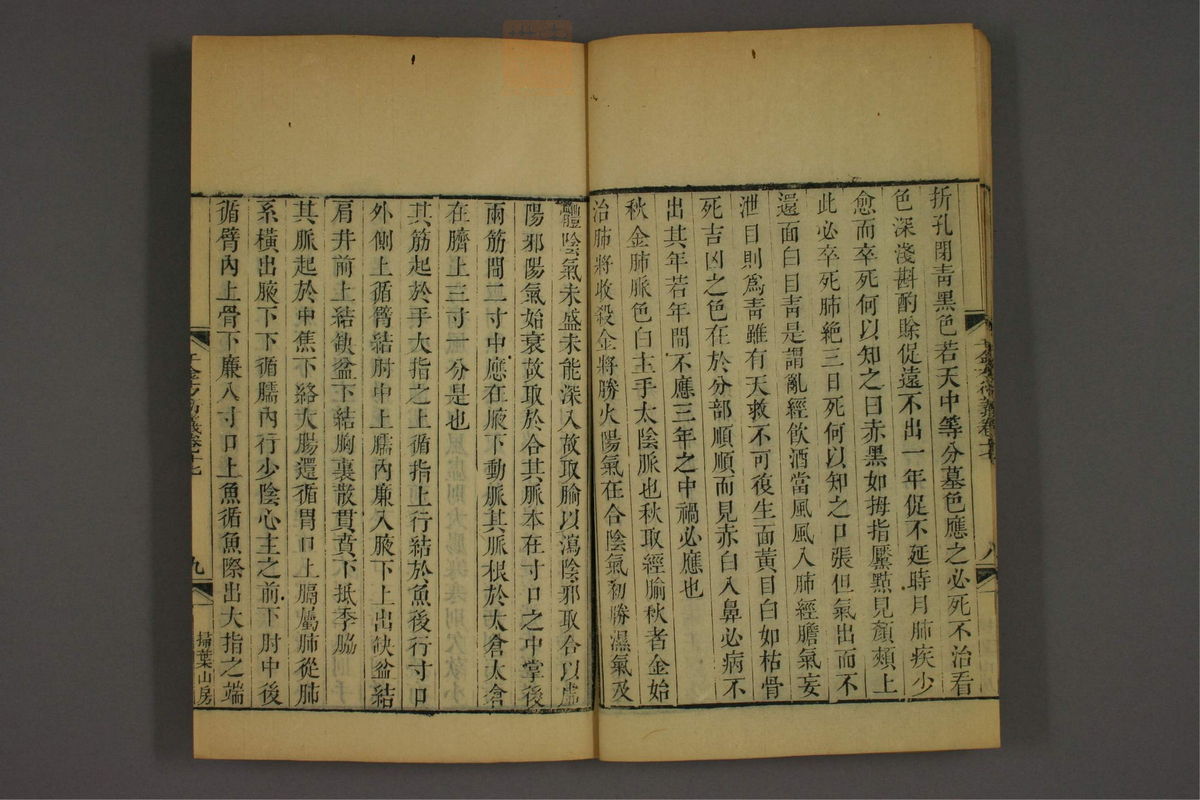 折孔閉靑黑色若天中等分墓色應之必死不治看
色深淺斟酌賒促遠不出一年促不延時月肺疾少
愈而卒死何以知之曰赤黑如拇指黶點見顏頰上
此必卒死肺絕三日死何以知之口張但氣出而不
還面白目靑是謂亂經飮酒當風風入肺經膽氣妄
泄目則爲靑雖有天救不可復生面黃目白如枯骨
死吉凶之色在於分部順順而見赤白入鼻必病不
出其年若年間不應三年之中禍必應也
秋金肺脈色白主手太陰脈也秋取經腧秋者金始
治肺將收殺金將勝火陽氣在合陰氣初勝濕氣及
體陰氣未盛未能深入故取腧以瀉陰邪取合以虛
陽邪陽氣始衰故取於合其脈本在寸口之中掌後
兩筋間二寸中應在腋下動脈其脈根於太倉太倉
在臍上三寸一分是也
其筋起於手大指之上循指上行結於魚後行寸口
外側上循臂結肘中上臑內廉入腋下上出缺盆結
肩井前上結缺盆下結胸裏散貫賁下抵季脇
其脈起於中焦下絡大腸還循胃口上膈屬肺從肺
系橫出腋下下循臑內行少陰心主之前下肘中後
循臂內上骨下廉入寸口上魚循魚際出大指之端
九
掃葉山房